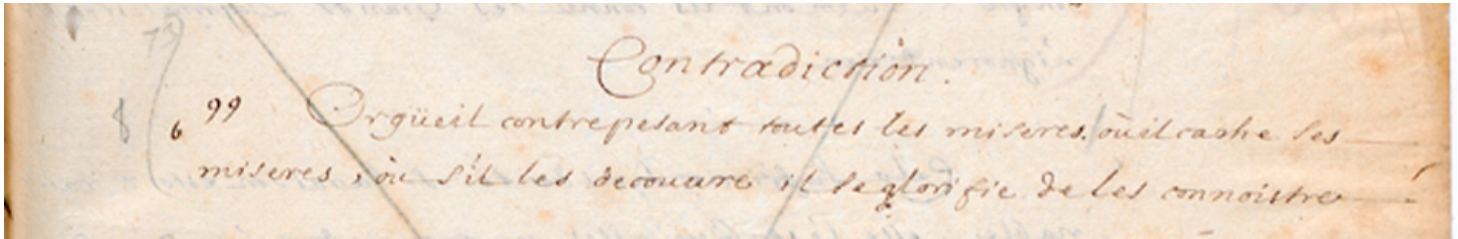 Contradiction.
99 Orgüeil contrepesant toutes les miseres. où il cache ses
6
miseres, où s'il les decouure il se glorifie de les connoistre